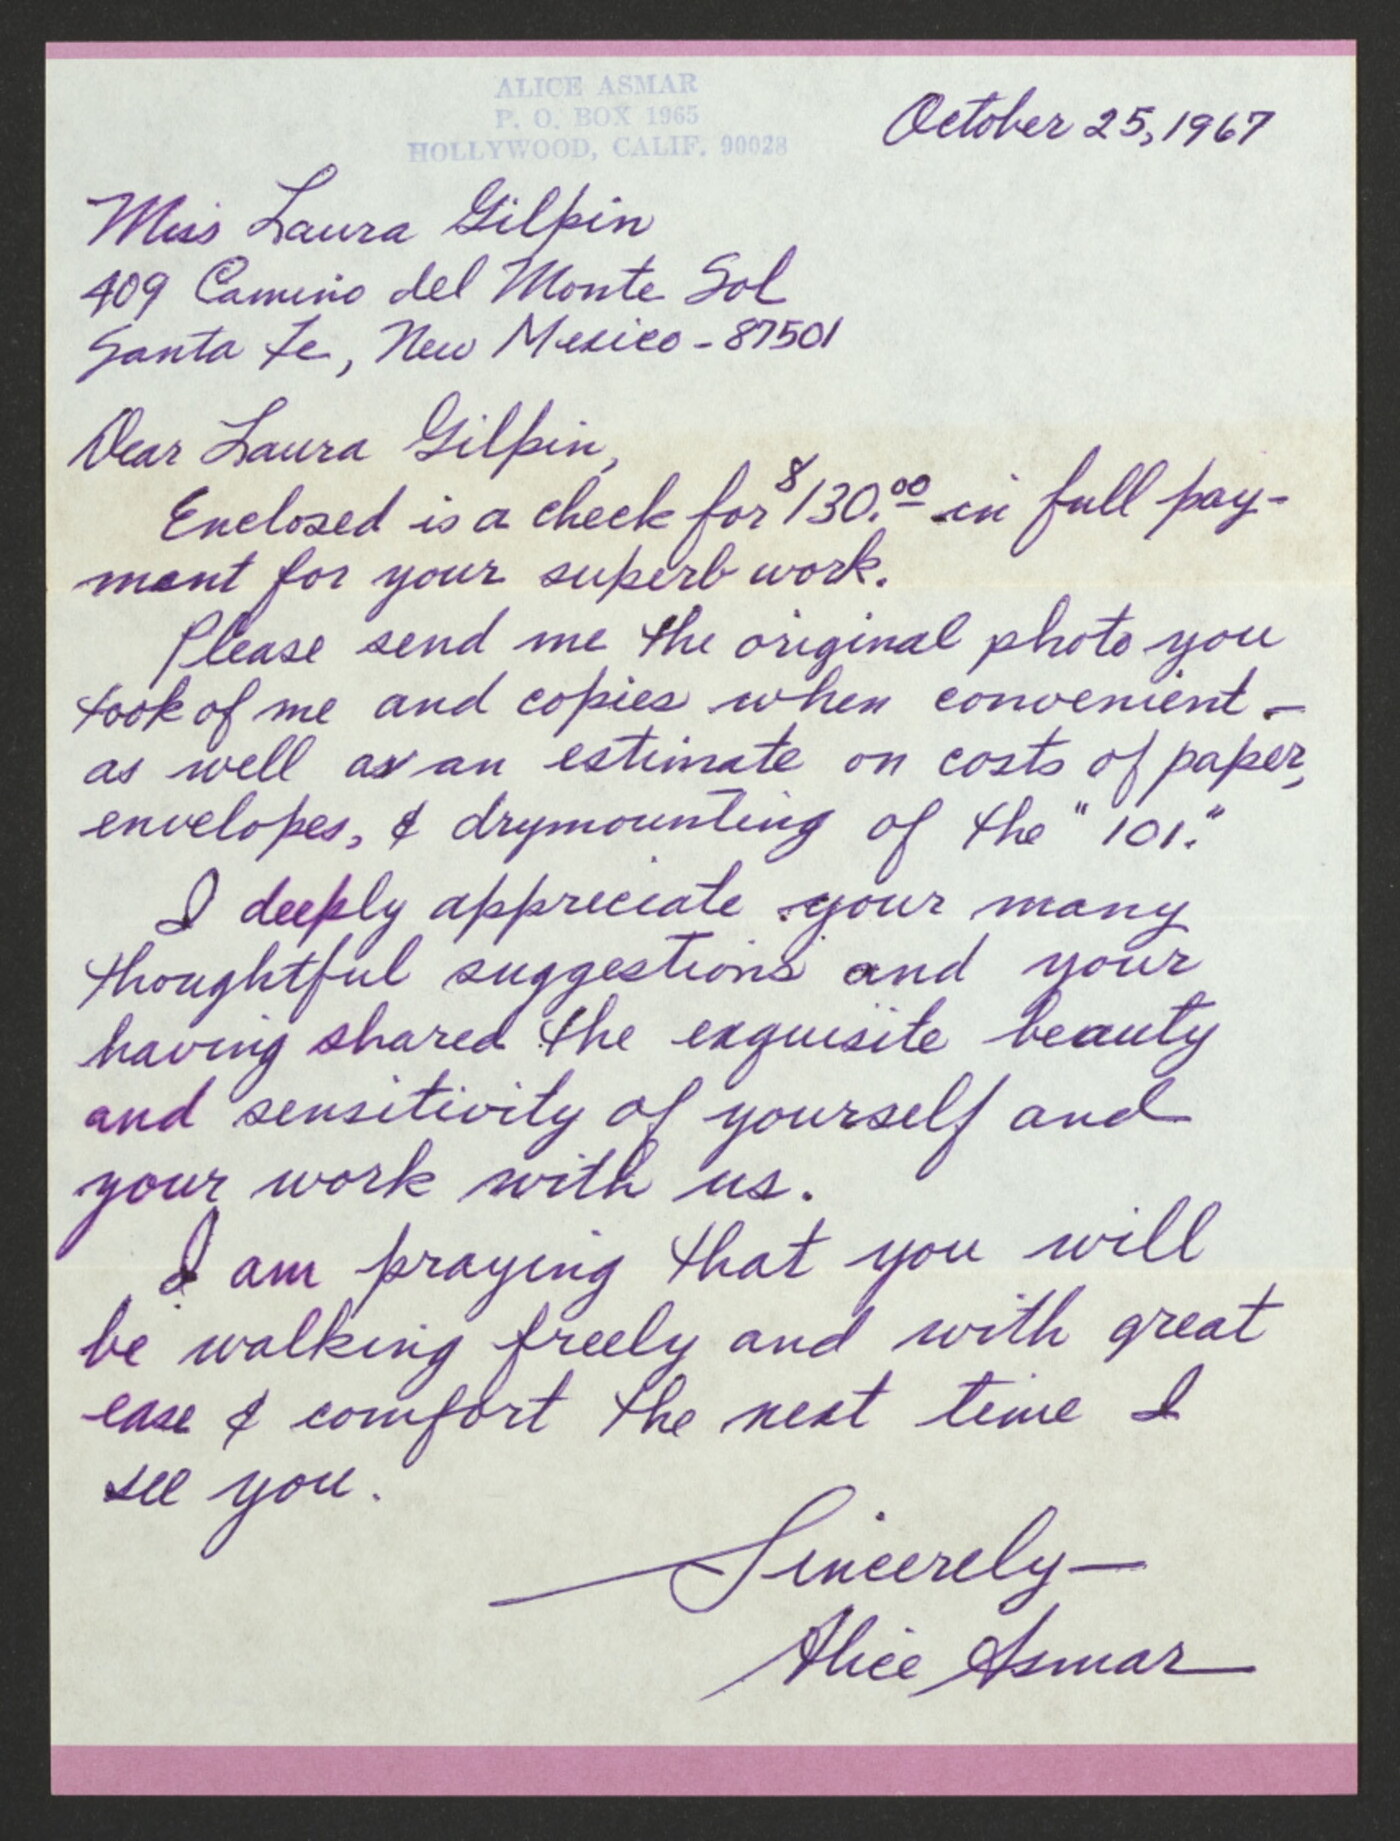 ALICE ASMAR
P. O. BOX 1965
HOLLYWOOD, CALIF. 90028
October 25, 1967
Miss Laura Gilpin
409 Camino del Monte Sol
Santa Fe, New Mexico - 87501
Dear Laura Gilpin,
Enclosed is a check for $130.00 in full pay-
ment for your superb work.
Please send me the original photo you
took of me and copies when convenient -
as well as an estimate on costs of paper,
envelopes, & drymounting of the "101."
I deeply appreciate your many
thoughtful suggestions and your
having shared the exquisite beauty
and sensitivity of yourself and
your work with us.
I am praying that you will
be walking freely and with great
ease & comfort the next time I
see you.
Sincerely—
Alice Asmar